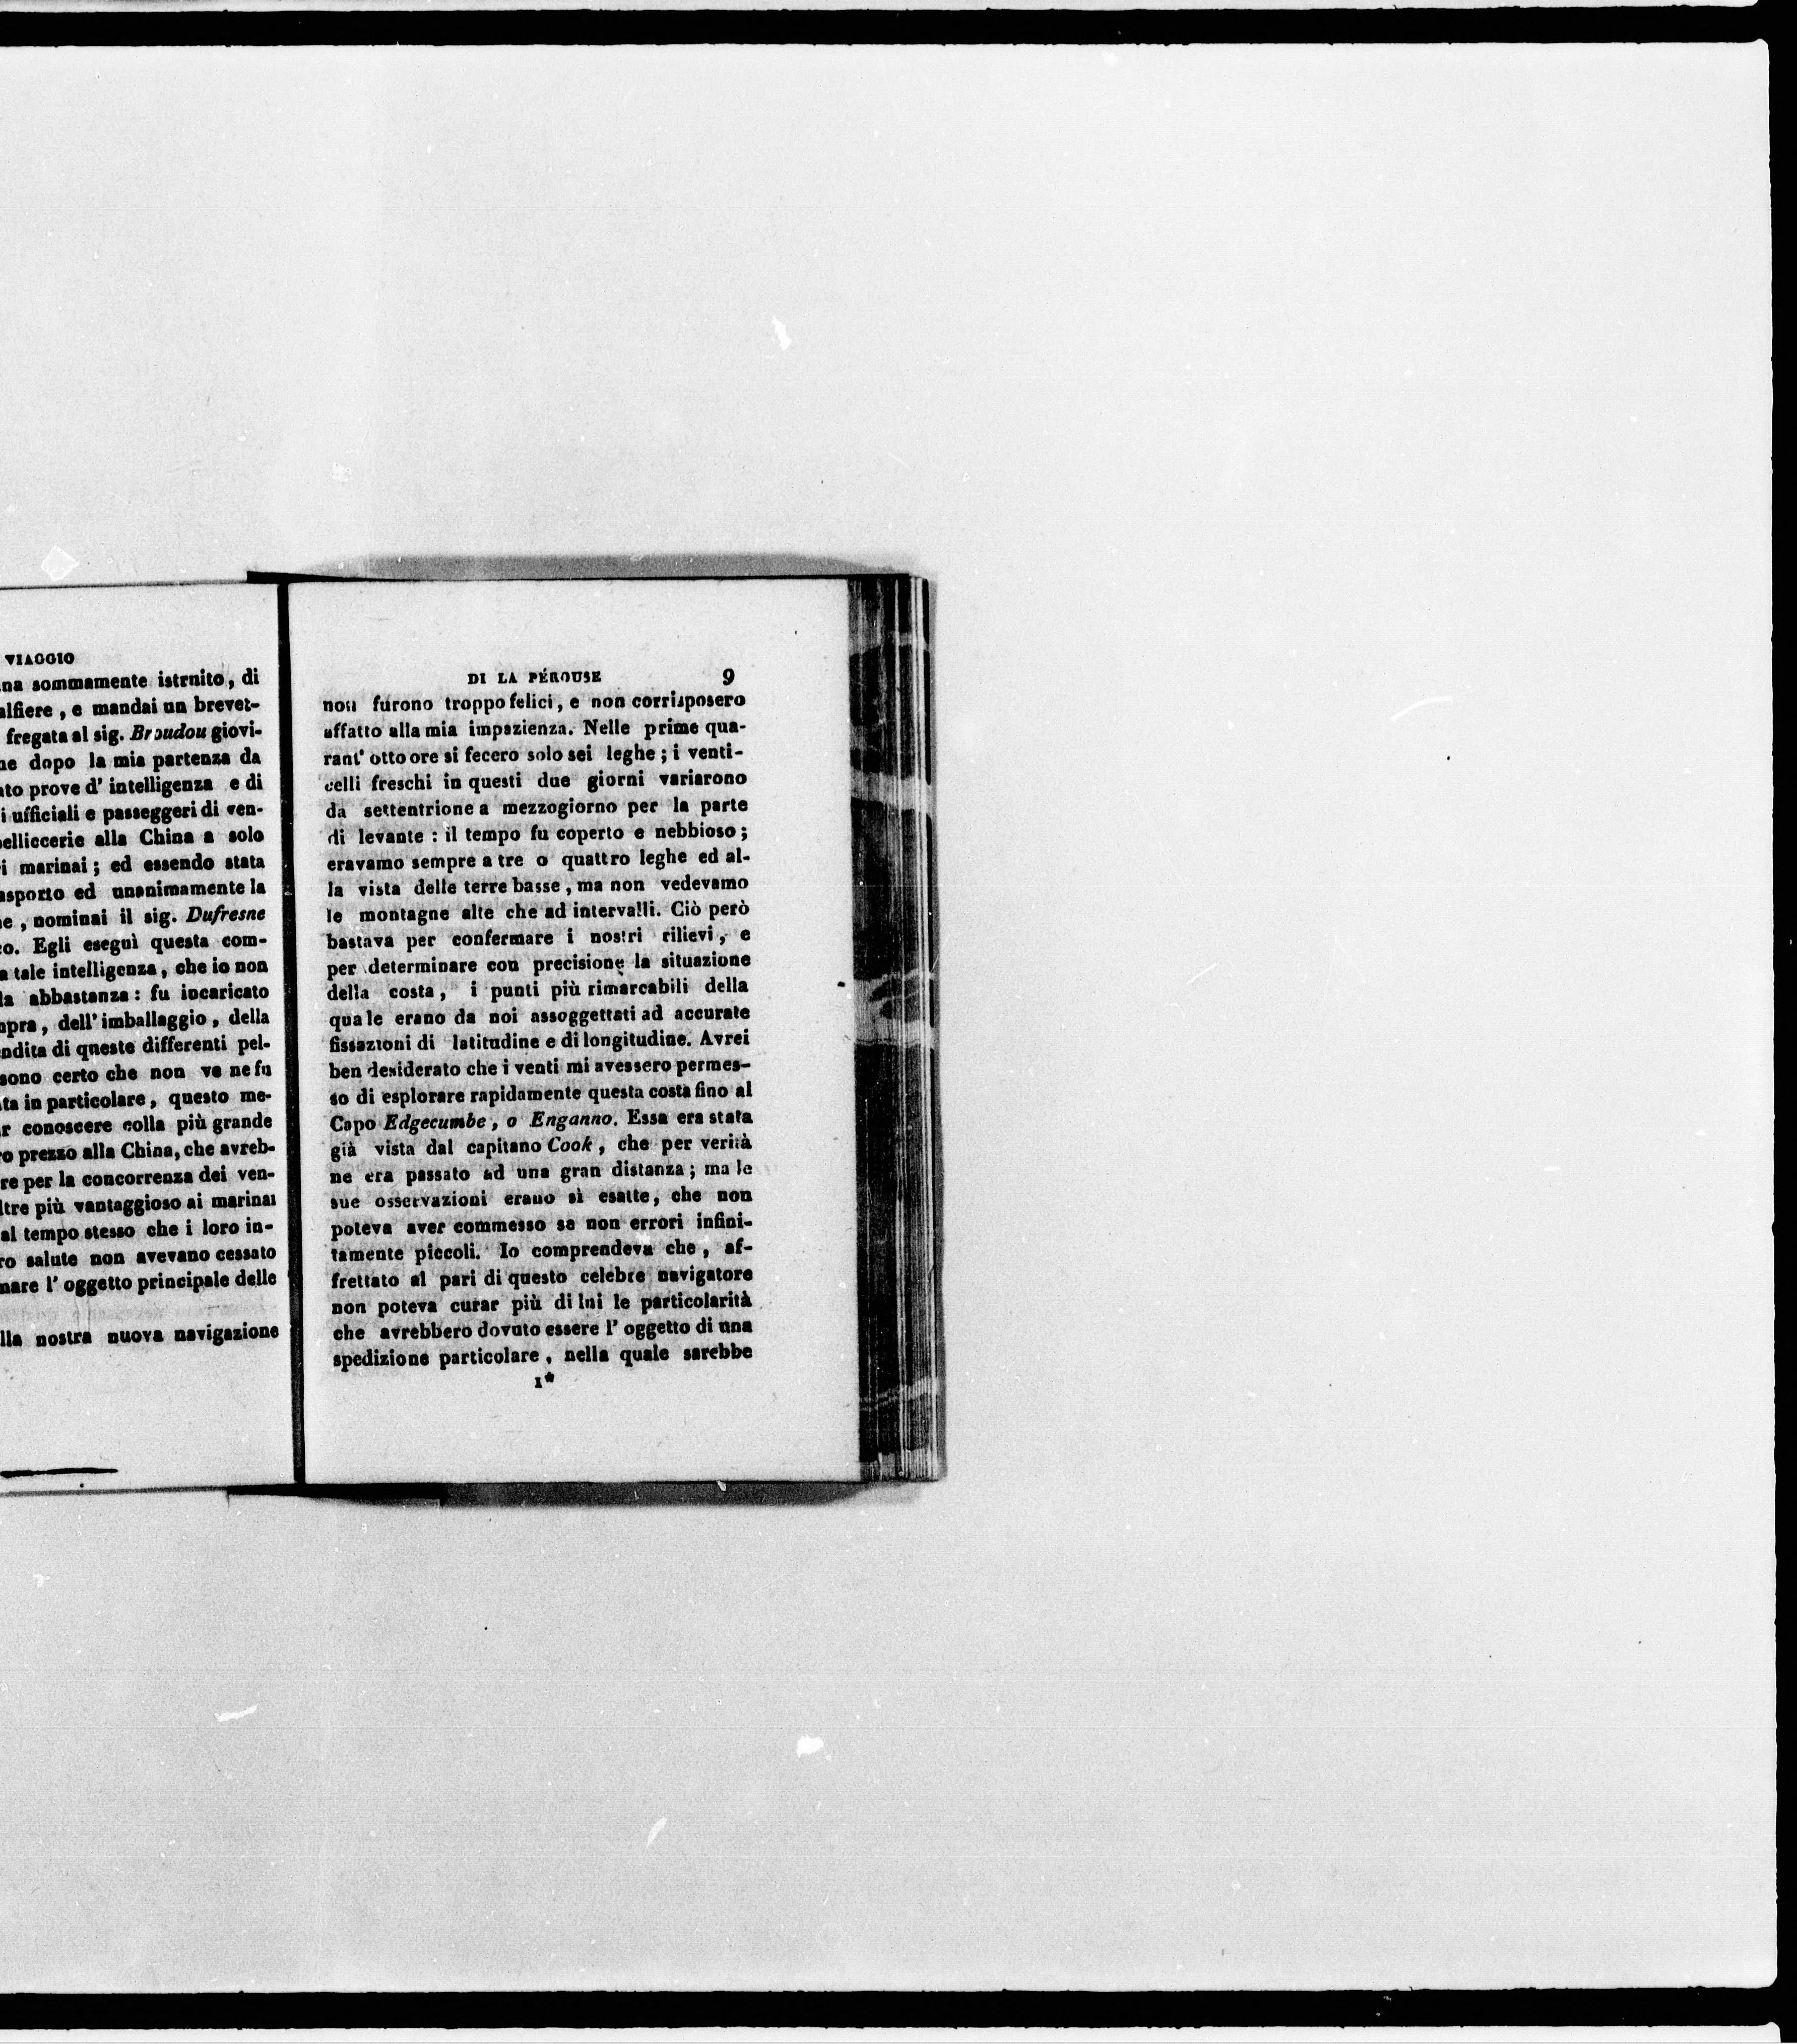 VIAGGIO
na sommamente istrnito, di
alfiere, e mandai un brevet-
fregata al sig. Broudou giovi-
ne dopo la mia partenza da
ato prove d' intelligenza e di
i ufficiali e passeggeri di ven-
pelliccerie alla China a solo
i marinai; ed essendo stata
asporto ed unanimamente la
ne, nominai il sig. Dufresne
co. Egli eseguì questa com-
a tale intelligenza, che io non
la abbastanza: fu incaricato
mpra, dell' imballaggio, della
endita di queste differenti pel-
sono certo che non ve ne fu
ata in particolare, questo me-
r conoscere colla più grande
ro prezzo alla China, che avreb-
re per la concorrenza dei ven-
ltre più vantaggioso ai marinai
al tempo stesso che i loro in-
ro salute non avevano cessato
mare l' oggetto principale delle
lla nostra nuova navigazione
DI LA PÉROUSE 9
non furono troppo felici, e non corrisposero
affatto alla mia impazienza. Nelle prime qua-
rant' otto ore si fecero solo sei leghe; i venti-
celli freschi in questi due giorni variarono
da settentrione a mezzogiorno per la parte
di levante: il tempo fu coperto e nebbioso;
eravamo sempre a tre o quattro leghe ed al-
la vista delle terre basse, ma non vedevamo
le montagne alte che ad intervalli. Ciò però
bastava per confermare i nostri rilievi, e
per determinare con precisione la situazione
della costa, i punti più rimarcabili della
quale erano da noi assoggettati ad accurate
fissazioni di latitudine e di longitudine. Avrei
ben desiderato che i venti mi avessero permes-
so di esplorare rapidamente questa costa fino al
Capo Edgecumbe, o Enganno. Essa era stata
già vista dal capitano Cook, che per verità
ne era passato ad una gran distanza; ma le
sue osservazioni erano sì esatte, che non
poteva aver commesso se non errori infini-
tamente piccoli. Io comprendeva che, af-
frettato al pari di questo celebre navigatore
non poteva curar più di lui le particolarità
che avrebbero dovuto essere l' oggetto di una
spedizione particolare, nella quale sarebbe
1*